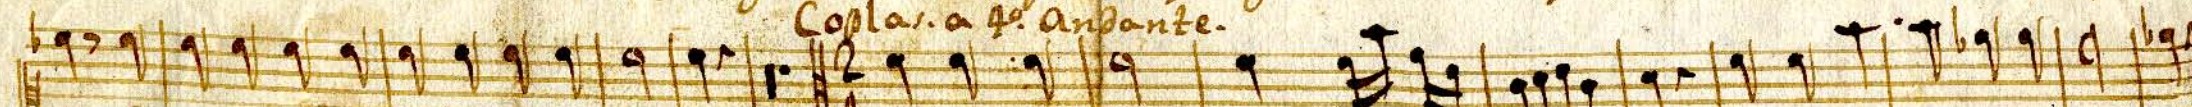 Coplas. a 4º. Andante.